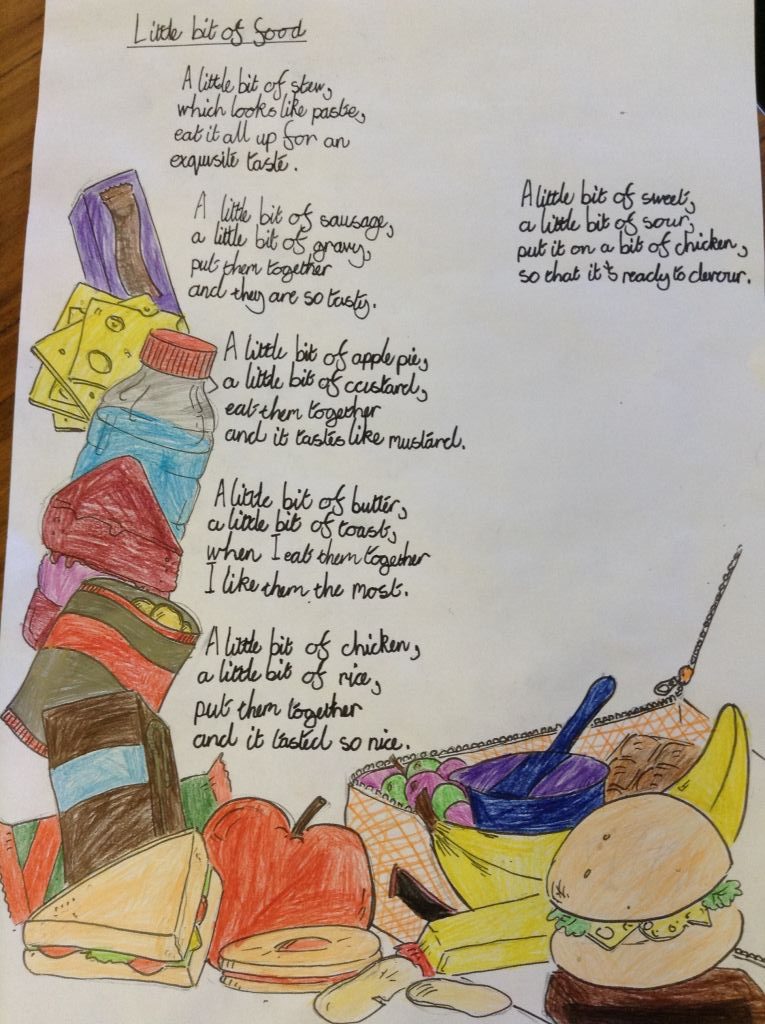 Little bit of food
A little bit of stew,
which looks like paste,
eat it all up for an
exquisite taste.
A little bit of sausage,
a little bit of gravy,
put them together
and they are so tasty.
A little bit of apple pie,
a little bit of custard,
eat them together
and it tastes like mustard.
A little bit of butter,
a little bit of toast,
when I eat them together
I like them the most.
A little bit of chicken,
a little bit of rice,
put them together
and it tasted so nice.
A little bit of sweet,
a little bit of sour,
put it on a bit of chicken,
so that it's ready to devour.